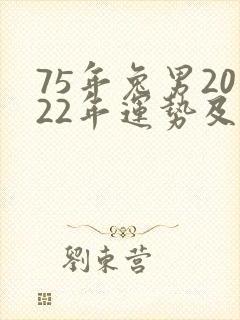 75年兔男20
22年運勢及
劉東营